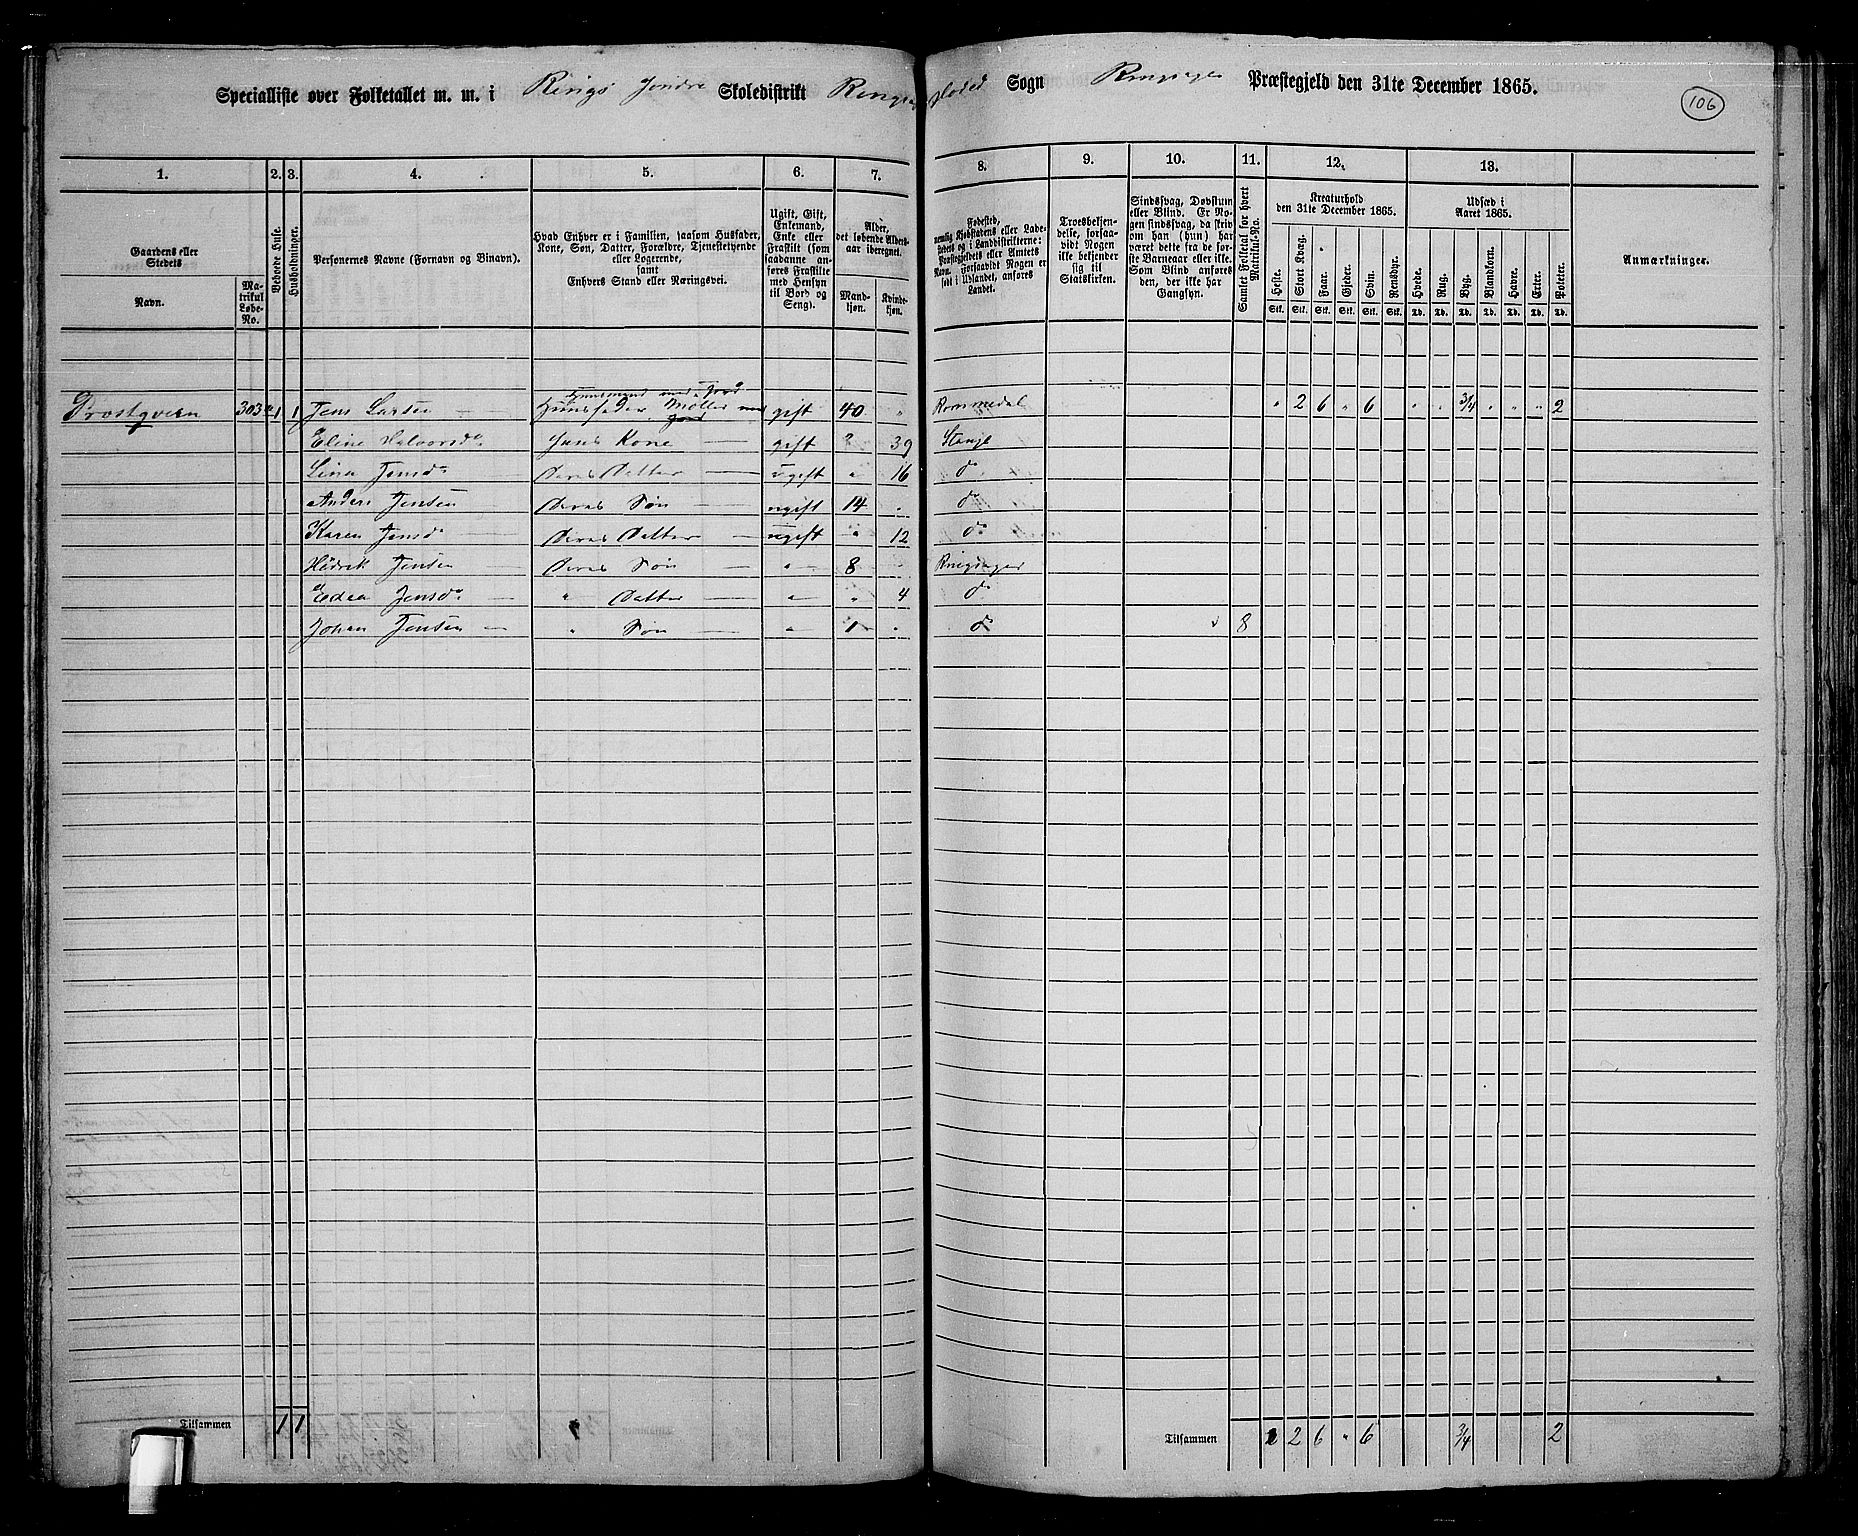 Specialliste over Folketallet m. m. i Rings Jendre Skoledistrikt Ringsager Hoved Sogn Ringsager Præstegjeld den 31te December 1865.
106
1. 2. 3. 4. 5. 6. 7. 8. 9. 10. 11. 12. 13.
Gaardens eller Stedets
Navn.
Matrikul Løbe-No.
Beboede Huse.
Husholdninger.
Personernes Navne (Fornavn og Binavn).
Hvad Enhver er i Familien, saasom Husfader, Kone, Søn, Datter, Forældre, Tjenestetyende eller Logerende, samt
Enhvers Stand eller Næringsvei.
Ugift, Gift, Enkemand, Enke eller Fraskilt (som saadanne anføres Fraskilte med Hensyn til Bord og Seng).
Alder, det løbende Alders-aar iberegnet.
Mandkjøn.
Kvindekjøn.
Fødested, nemlig Kjøbstadens eller Ladestedets og i Landdistrikterne: Præstegjeldets eller Amtets Navn. Forsaavidt Nogen er født i Udlandet, anføres Landet.
Troesbekjendelse, forsaavidt Nogen ikke bekjender sig til Statskirken.
Sindssvag, Døvstum eller Blind. Er Nogen sindssvag, da skriv om han (hun) har været dette fra de første Barneaar eller ikke. Som Blind anføres den, der ikke har Gangsyn.
Samlet Folketal for hvert Matrikul-No.
Kreaturhold den 31te December 1865.
Heste. Stort Kvæg. Faar. Gjeder. Svin. Rensdyr.
Stk. Stk. Stk. Stk. Stk. Stk.
Udsæd i Aaret 1865.
Hvede. Rug. Byg. Blandkorn. Havre. Erter. Poteter.
Td. Td. Td. Td. Td. Td. Td.
Anmærkninger.
Huusmand med Jord
Prostqvern 303 1 1 Jens Larsen — Huusfader Møller med Jord gift 40 " Rommedal " 2 6 " 6 " " 3/4 " " " 2
Eline Halvorsdr Hans Kone — gift 39 Stange
Lina Jensdr — Deres Datter — ugift " 16 do
Anders Jensen Deres Søn — ugift 14 " do
Karen Jensdr Deres Datter — ugift " 12 do
Hedrik Jensen Deres Søn — " 8 " Ringsager
Jensdr — " Datter — " " 4 do
Johan Jensen — " Søn — " 1 " do 8
Tilsammen 1 1
Tilsammen 2 6 " 6 3/4 2